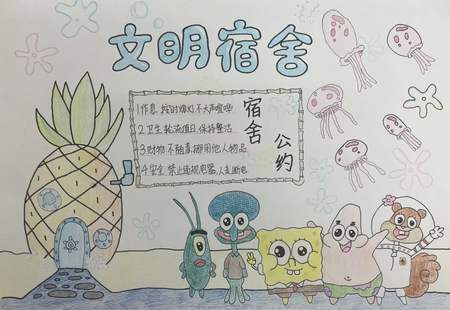 文明宿舍
宿舍公约
1作息:按时熄灯不大声喧哗
2卫生:轮流值日,保持整洁
3财物:不随意挪用他人物品
4安全:禁止违规电器,人走断电